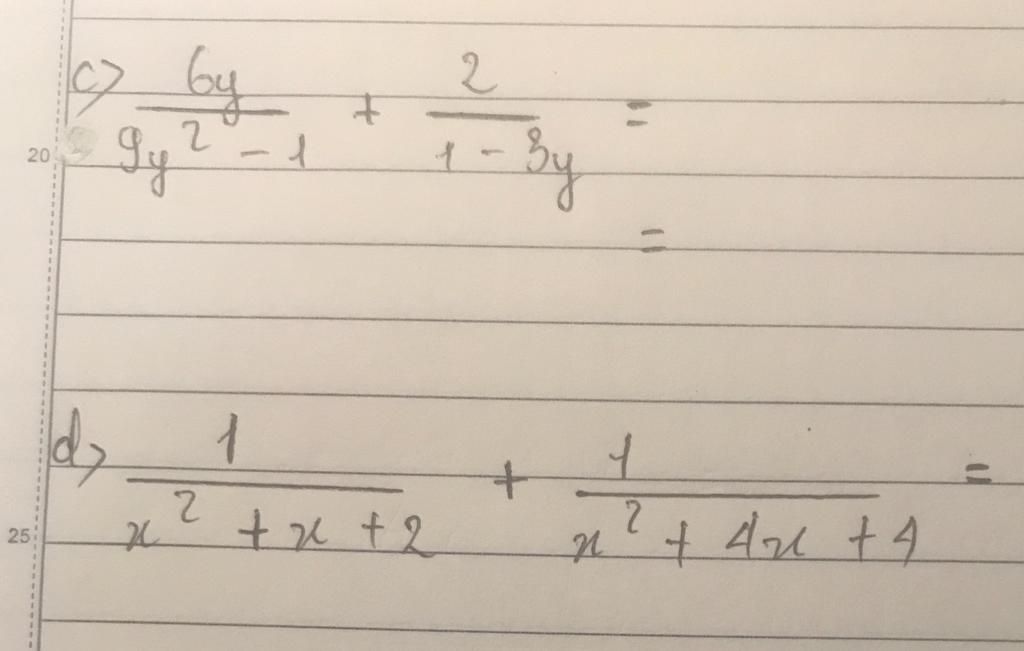 c) 6y/(9y² - 1) + 2/(1 - 3y) =
20
=
d) 1/(x² + x + 2) + 1/(x² + 4x + 4) =
25